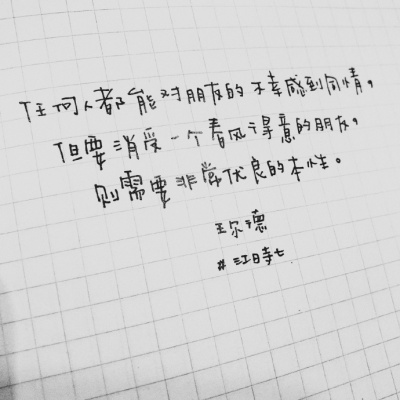 任何人都能对朋友的不幸感到同情，
但要消受一个春风得意的朋友，
则需要非常优良的本性。
王尔德
#江時七